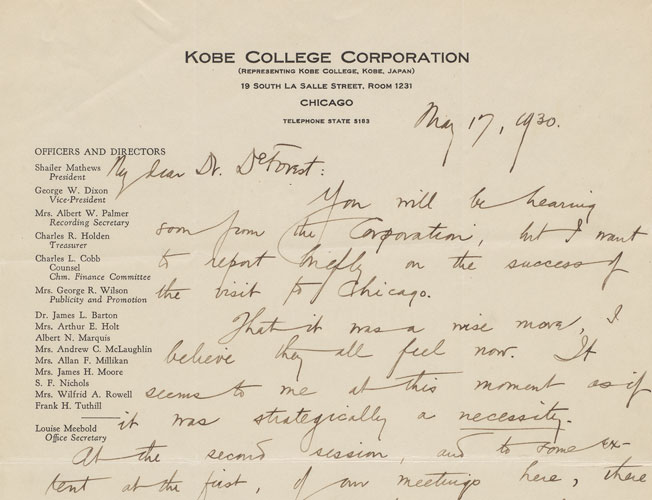 KOBE COLLEGE CORPORATION
(REPRESENTING KOBE COLLEGE, KOBE, JAPAN)
19 SOUTH LA SALLE STREET, ROOM 1231
CHICAGO
TELEPHONE STATE 5183
May 17, 1930.
OFFICERS AND DIRECTORS
Shailer Mathews
President
George W. Dixon
Vice-President
Mrs. Albert W. Palmer
Recording Secretary
Charles R. Holden
Treasurer
Charles L. Cobb
Counsel
Chm. Finance Committee
Mrs. George R. Wilson
Publicity and Promotion
Dr. James L. Barton
Mrs. Arthur E. Holt
Albert N. Marquis
Mrs. Andrew C. McLaughlin
Mrs. Allan F. Millikan
Mrs. James H. Moore
S. F. Nichols
Mrs. Wilfrid A. Rowell
Frank H. Tuthill
Louise Meebold
Office Secretary
My dear Dr. DeForest:
You will be hearing
soon from the Corporation, but I want
to report briefly on the success of
the visit to Chicago.
That it was a wise move, I
believe they all feel now. It
seems to me at this moment as if
it was strategically a necessity.
At the second session, and to some ex-
tent at the first, of our meetings here, there